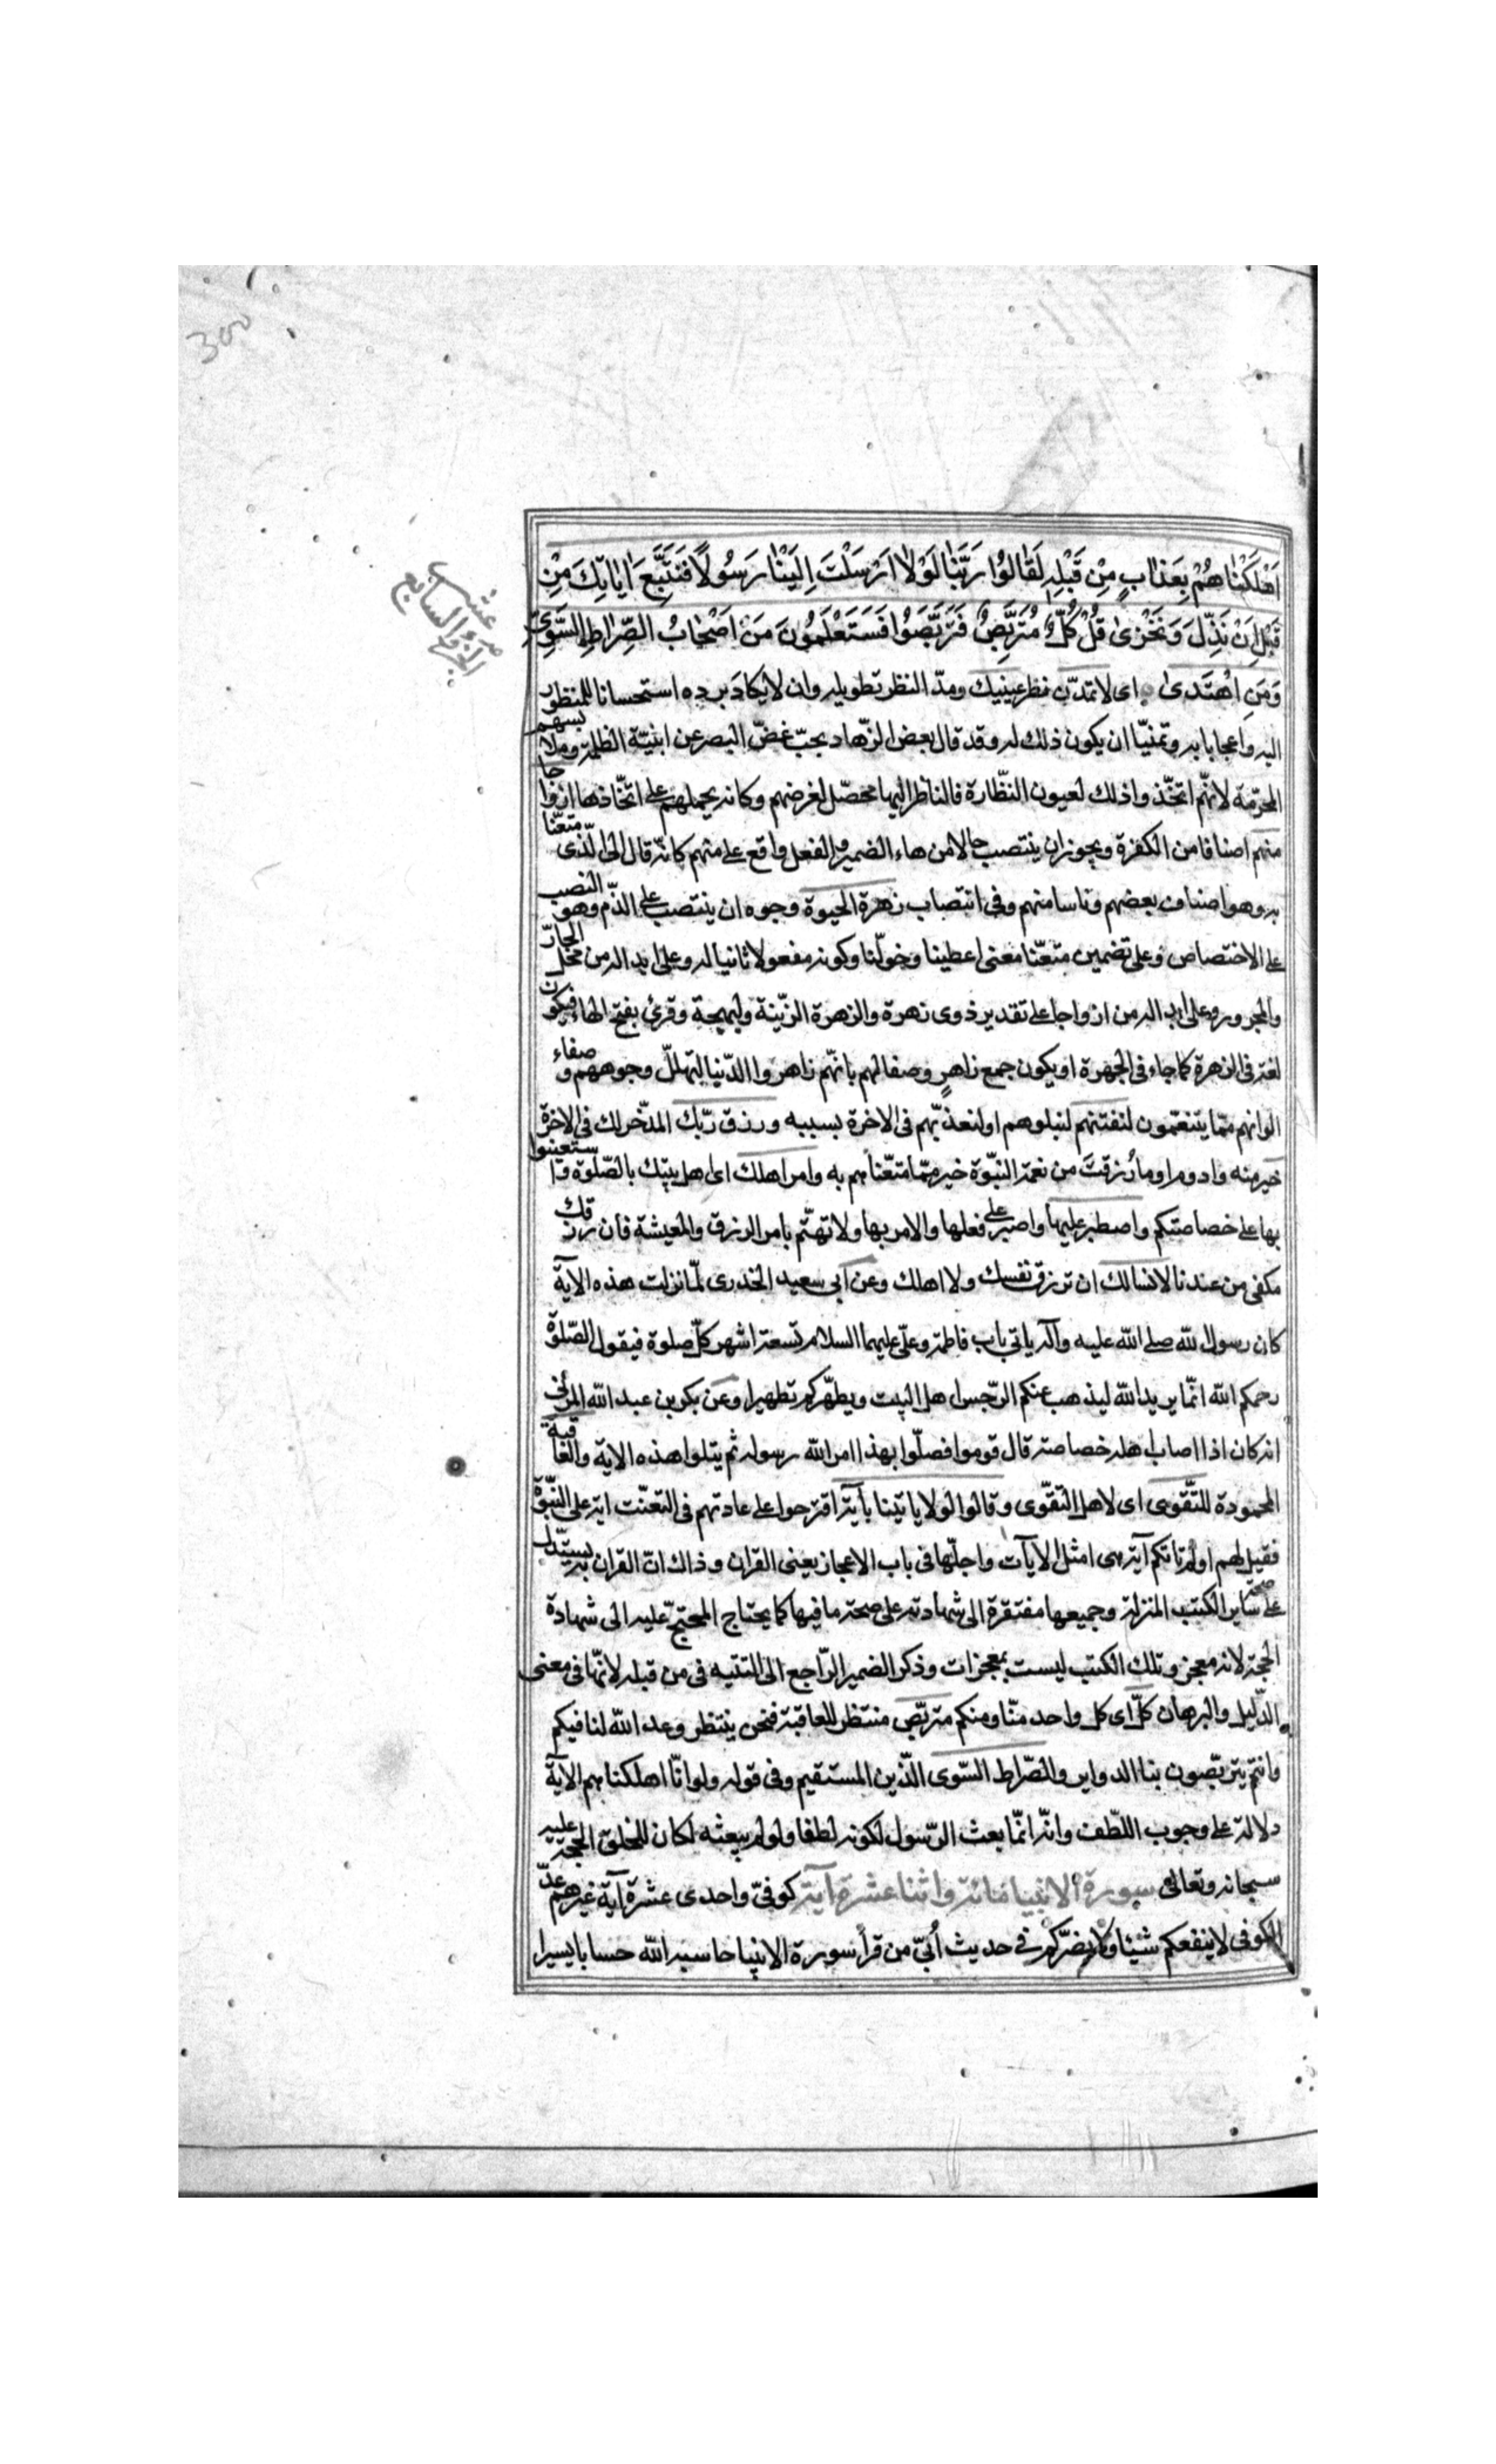 300
الجزؤ السابع عشر
اَهْلَكْنٰاهُمْ بِعَذٰابٍ مِنْ قَبْلِهِ لَقٰالُوُا رَبَّنٰا لَوْلٰا اَرْسَلْتَ اِلَيْنٰا رَسُولًا فَنَتَّبِعَ اٰيٰاتِكَ مِنْ
قَبْلِ اَنْ نَذِلَّ وَنَخْزىٰ قُلْ كُلٌّ مُتَرَبِّصٌ فَتَرَبَّصُوْا فَسَتَعْلَمُونَ مَنْ اَصْحٰابُ الصِّرٰاطِ السَّوِىِّ
وَمَنِ اهْتَدىٰ اى لا تمدّن نظر عينيك ومدّ النظر تطويله وان لا يكاد يرده استحسانا للمنظور
اليه واعجابا به وتمنيّا ان يكون ذلك له وقد قال بعض الزهّاد يجبّ غضّ البصر عن ابنيّة الظلمة وملابسهم
المحرّمة لانّهم اتّخذوا ذلك لعيون النظّارة فالناظر اليها محصّل لغرضهم وكانه يحملهم على اتّخاذها ازواجا
منهم اصنافا من الكفرة ويجوز ان ينتصب حالا من هاء الضمير والفعل واقع على منهم كانّه قال الى الّذى متعّنا
به وهو اصناف بعضهم وناسا منهم وفى انتصاب زهرة الحيوة وجوه ان ينتصب على الذّم وهو النصب
على الاختصاص وعلى تضمين متعّنا معنى اعطينا وخوّلنا وكونه مفعولا ثانيا له وعلى ابداله من محل الجارّ
والمجرور وعلى ابداله من ازواجا على تقدير ذوى زهرة والزهرة الزّينة والبهجة وقرئ بفتح الهاء فيكون
لغة فى الزهرة كما جاء فى الجهرة او يكون جمع زاهرٍ وصفا لهم بانّهم زاهروا الدّنيا لتهلّل وجوههم وصفاء
الوانهم ممّا يتنعّمون لنفتنهم لنبلوهم او لنعذّبهم فى الاخرة بسببه ورزق ربّك المدّخر لك فى الاخرة
خير منه وادوم او ما رُزقتَ من نعمة النبّوة خير ممّا متعّناهم به وامر اهلك اى اهل بيتك بالصّلوة واستعينوا
بها على خصاصتكم واصطبر عليها واصبر على فعلها والامر بها ولا تهتّم بامر الرزق والمعيشة فان رزقك
مكفى من عندنا لا نسالك ان ترزق نفسك ولا اهلك وعن ابى سعيد الخدرى لمّا نزلت هذه الاية
كان رسول الله صلى الله عليه وآله ياتى باب فاطمة وعلى عليهما السلام تسعة اشهر كلّ صلوة فيقول الصّلوة
رحمكم الله انّما يريد الله ليذهب عنكم الرّجس اهل البيت ويطهّركم تطهيرا وعن بكر بن عبد الله المزنى
انه كان اذا اصاب اهله خصاصة قال قوموا فصلّوا بهذا امر الله رسوله ثم يتلوا هذه الاية والعاقبة
المحمودة للتّقوى اى لاهل التّقوى وقالوا لولا ياتينا بآية اقترحوا على عادتهم فى التعنّت اية على النبّوة
فقيل لهم اولم تاتكم آية هى امثل الايآت واجلّها فى باب الاعجاز يعنى القران وذاك انّ القران به يستدل
على صحّة ساير الكتب المنزلة وجميعها مفتقرة الى شهادته على صحة ما فيها كما يحتاج المحتجّ عليه الى شهادة
الحجّة لانه معجز وتلك الكتب ليست بمعجزات وذكر الضمير الرّاجع الى البّينه فى من قبله لانّها فى معنى
الدّليل والبرهان كلّ اى كل واحد منّا ومنكم متربّص منتظر للعاقبة فنحن ننتظر وعد الله لنا فيكم
وانتم تتربّصون بنا الدواير والصّراط السّوى الدّين المستقيم وفى قوله ولو انّا اهلكناهم الاية
دلالة على وجوب اللطّف وانّه انّما بعث الرّسول لكونه لطفا ولو لم يبعثه لكان للخلق الحجة عليه
سبحانه وتعالى سورة الانبيا مائة واثنا عشرة آية كوفىّ واحدى عشرة آية غيرهم عدّ
الكوفى لا ينفعكم شيئا ولا يضرّكم فى حديث اُبىّ من قرأ سورة الانبيا حاسبه الله حسابا يسيرا